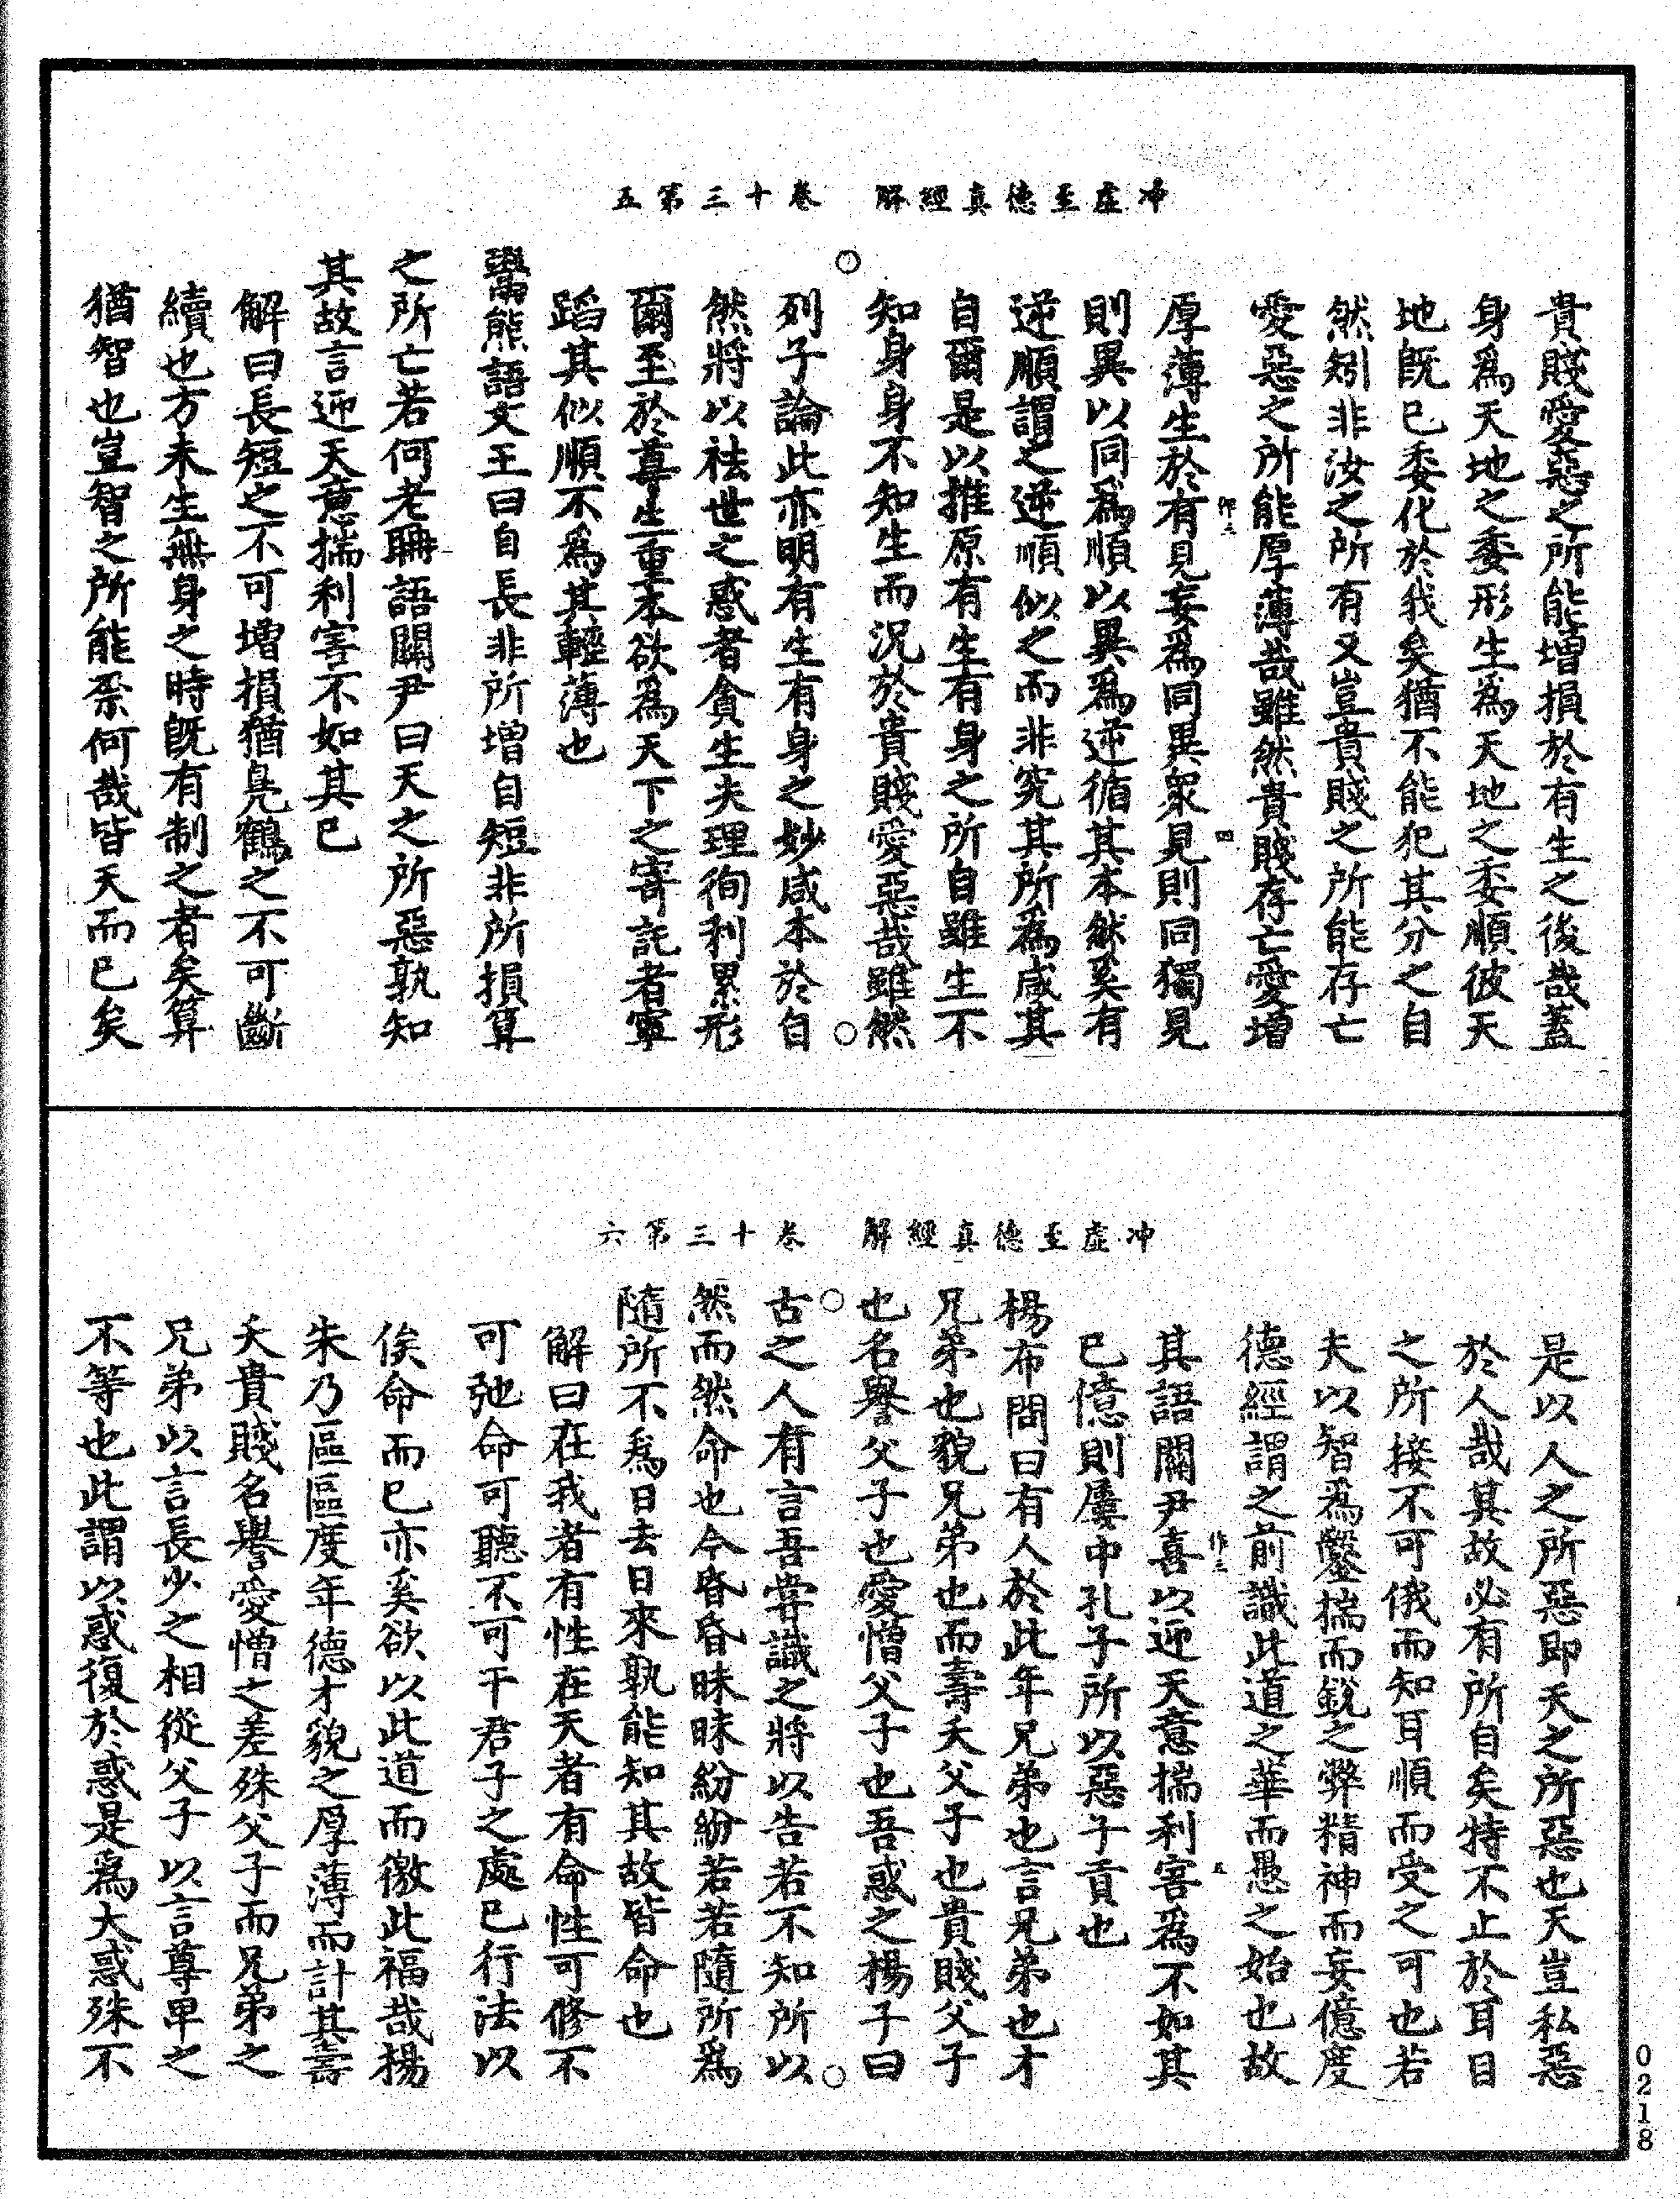 冲虚至德真經解　卷十三第五
貴賤愛惡之所能增損於有生之後哉蓋
身爲天地之委形生爲天地之委順彼天
地既已委化於我矣猶不能犯其分之自
然矧非汝之所有又豈貴賤之所能存亡
愛惡之所能厚薄哉雖然貴賤存亡愛增
四
厚薄生於有見妄爲同異衆見則同獨見
則異以同爲順以異爲逆循其本然奚有
逆順謂之逆順似之而非究其所爲咸其
自爾是以推原有生有身之所自雖生不
知身身不知生而況於貴賤愛惡哉雖然
列子論此亦明有生有身之妙咸本於自
然將以祛世之惑者貪生夫理徇利累形
爾至於尊生重本欲爲天下之寄託者寧
蹈其似順不爲其輕薄也
鬻熊語文王曰自長非所增自短非所損算
之所亡若何老聃語關尹曰天之所惡孰知
其故言迎天意揣利害不如其已
解曰長短之不可增損猶鳧鶴之不可斷
續也方未生無身之時既有制之者矣算
猶智也豈智之所能柰何哉皆天而已矣
冲虚至德真經解　卷十三第六
是以人之所惡即天之所惡也天豈私惡
於人哉其故必有所自矣特不止於耳目
之所接不可俄而知耳順而受之可也若
夫以智爲鑿揣而銳之弊精神而妄億度
德經謂之前識此道之華而愚之始也故
五
其語關尹喜以迎天意揣利害爲不如其
已億則屢中孔子所以惡子貢也
楊布問曰有人於此年兄弟也言兄弟也才
兄弟也貌兄弟也而壽夭父子也貴賤父子
也名譽父子也愛憎父子也吾惑之楊子曰
古之人有言吾嘗識之將以告若不知所以
然而然命也今昏昏昧昧紛紛若若隨所爲
隨所不爲日去日來孰能知其故皆命也
解曰在我者有性在天者有命性可修不
可弛命可聽不可干君子之處已行法以
俟命而已亦奚欲以此道而徼此福哉楊
朱乃區區度年德才貌之厚薄而計其壽
夭貴賤名譽愛憎之差殊父子而兄弟之
兄弟以言長少之相從父子以言尊卑之
不等也此謂以惑復於惑是爲大惑殊不
0218